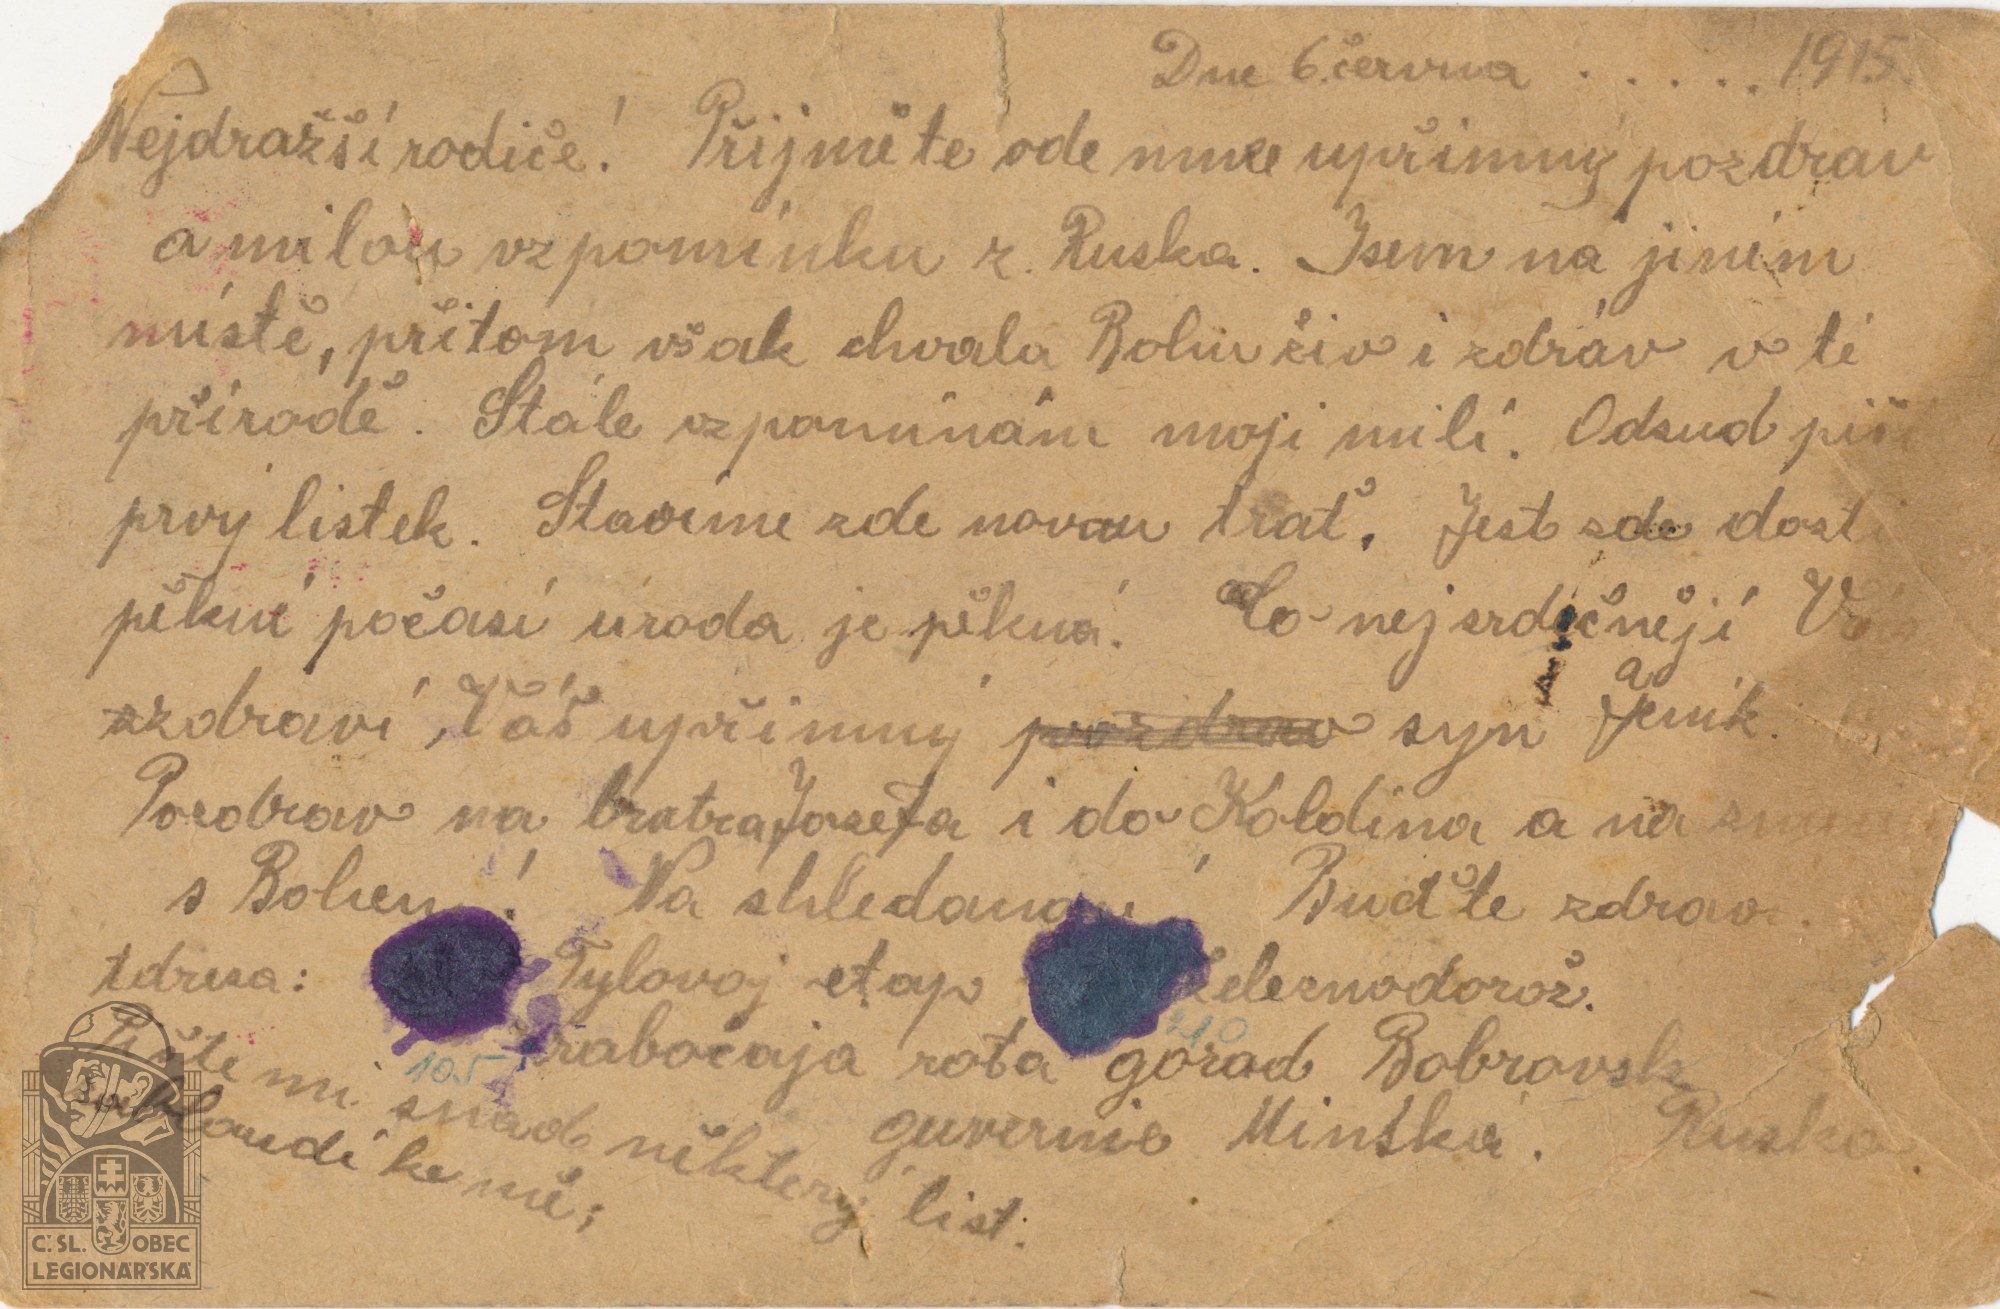 Dne 6. června . . . . . 1915.
Nejdražší rodiče! Přijměte ode mne upřimný pozdrav
a milou vzpomínku z. Ruska. Jsem na jiném
místě, přitom však chvala Bohu živ i zdráv v té
přírodě. Stále vzpomínám moji milí. Odsud píši
prvý listek. Stavíme zde novou trať. Jest zde dosti
pěkné počasí úroda je pěkná. Co nejsrdečnějí Vás
zdraví, Váš upřimný pozdrav syn Jeník.
Pozdrav na bratra Josefa i do Koldina a na
s Bohem! Na shledanou! Buďte zdrav
Adresa: Tylovoj etap železnodorož.
105 210
rabočaja rota gorad Bobrovsk
Pište mi snad některý list.
guvernie Minská. Ruska.
zabloudí ke mě;
Č. SL. OBEC
LEGIONÁŘSKÁ